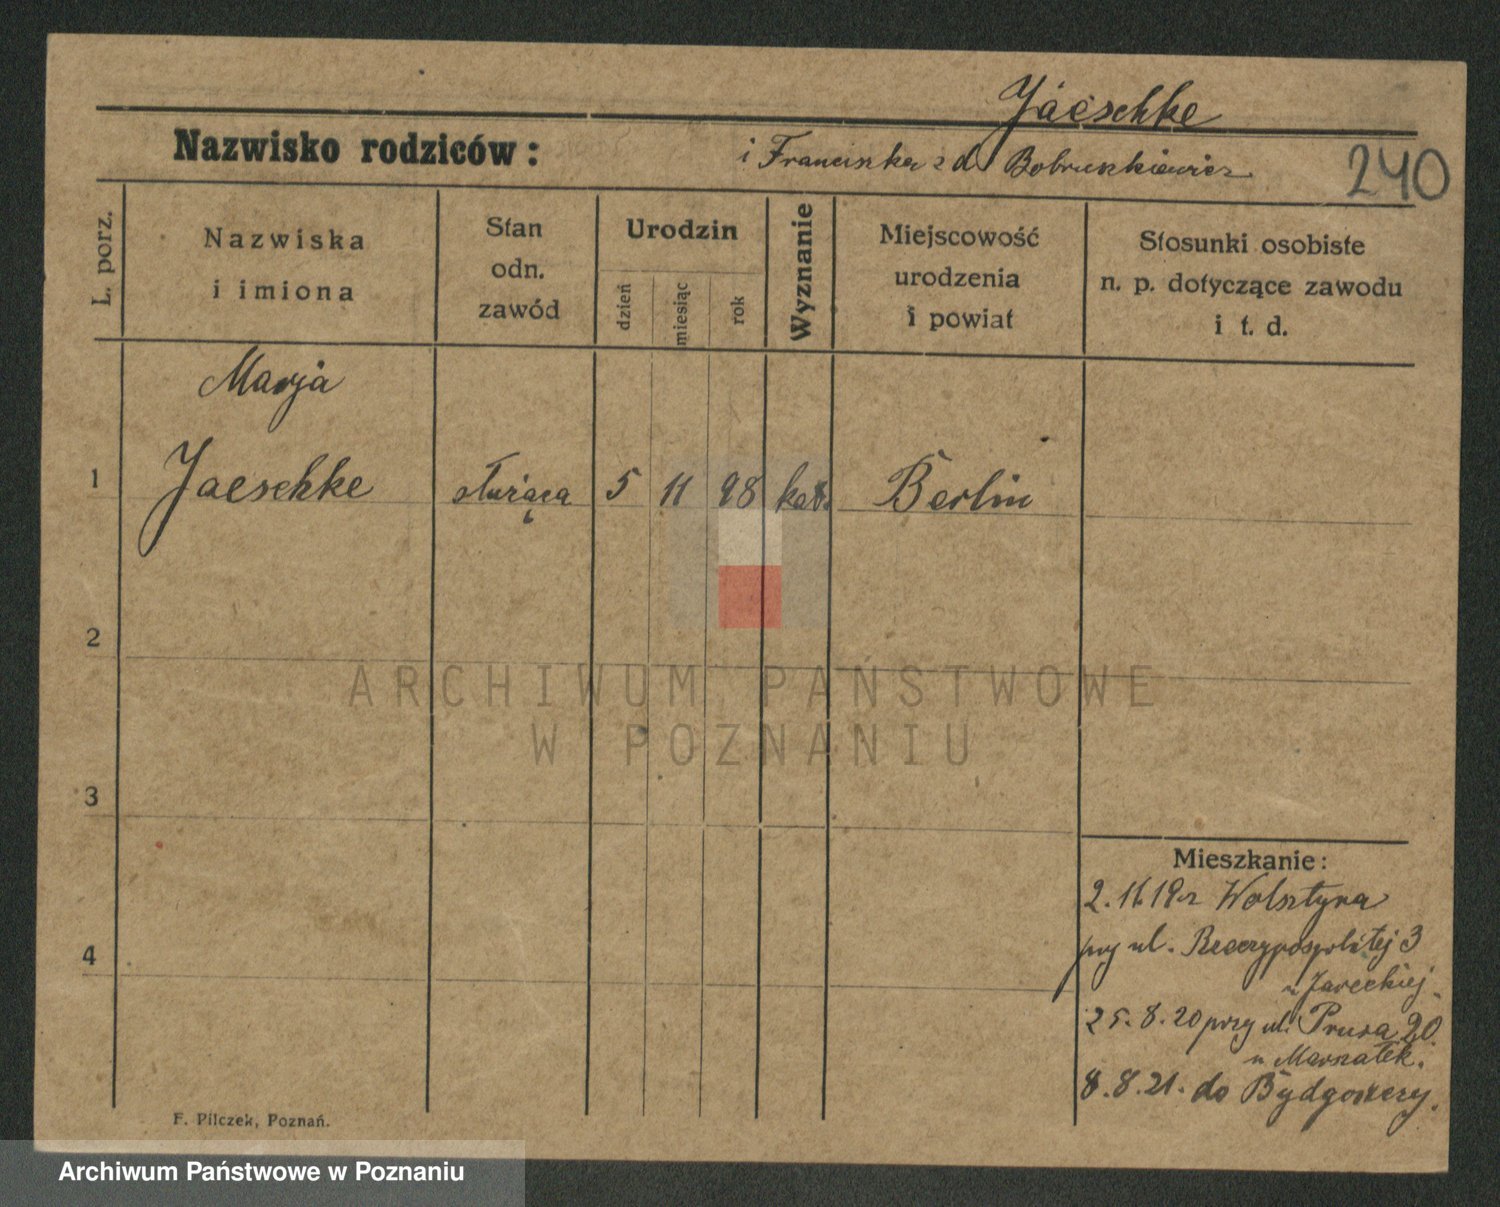 Jaeschke
Nazwisko rodziców:
i Franciszka z d. Bobruszkiewicz
240
L. porz.
Nazwiska
i imiona
Stan
odn.
zawód
Urodzin
dzień
miesiąc
rok
Wyznanie
Miejscowość
urodzenia
i powiat
Stosunki osobiste
n. p. dotyczące zawodu
i t. d.
Marja
1 Jaeschke służąca 5 11 98 kat. Berlin
2
ARCHIWUM PAŃSTWOWE
W POZNANIU
3
Mieszkanie:
2.11.19 z Wolsztyna
przy ul. Rzeczypospolitej 3
u Jareckiej.
4
25.8.20 przy ul. Prusa 20.
u Marszałek.
8.8.21. do Bydgoszczy.
F. Pilczek, Poznań.
Archiwum Państwowe w Poznaniu